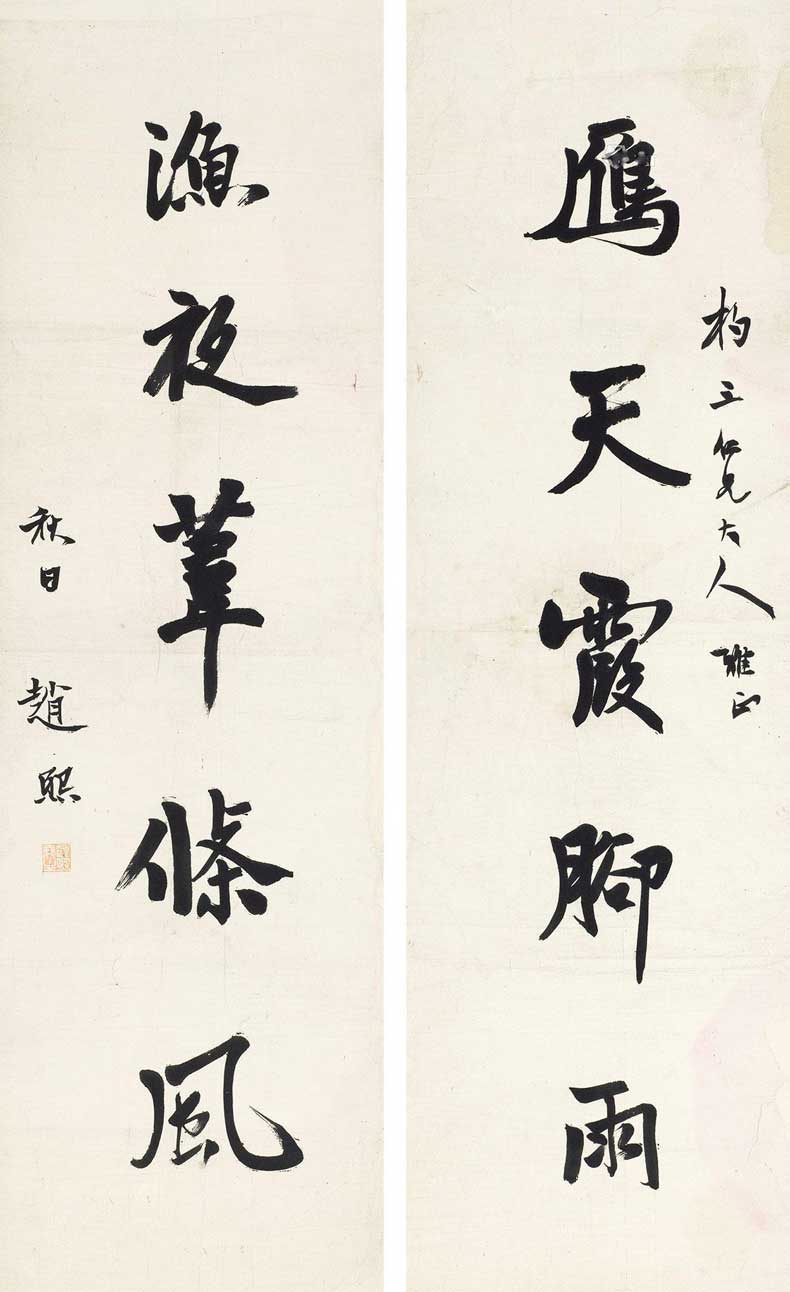 雁天霞腳雨
杓三仁兄大人雅正
漁夜葦條風
秋日 趙熙